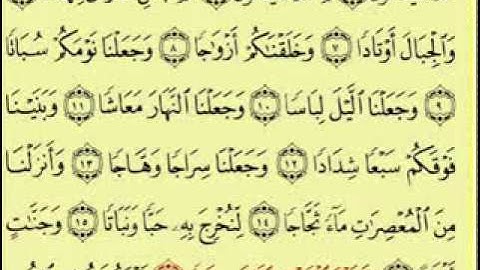 وَٱلْجِبَالَ أَوْتَادًا ٧ وَخَلَقْنَٰكُمْ أَزْوَٰجًا ٨ وَجَعَلْنَا نَوْمَكُمْ سُبَاتًا
٩ وَجَعَلْنَا ٱلَّيْلَ لِبَاسًا ١٠ وَجَعَلْنَا ٱلنَّهَارَ مَعَاشًا ١١ وَبَنَيْنَا
فَوْقَكُمْ سَبْعًا شِدَادًا ١٢ وَجَعَلْنَا سِرَاجًا وَهَّاجًا ١٣ وَأَنزَلْنَا
مِنَ ٱلْمُعْصِرَٰتِ مَآءً ثَجَّاجًا ١٤ لِّنُخْرِجَ بِهِۦ حَبًّا وَنَبَاتًا ١٥ وَجَنَّٰتٍ